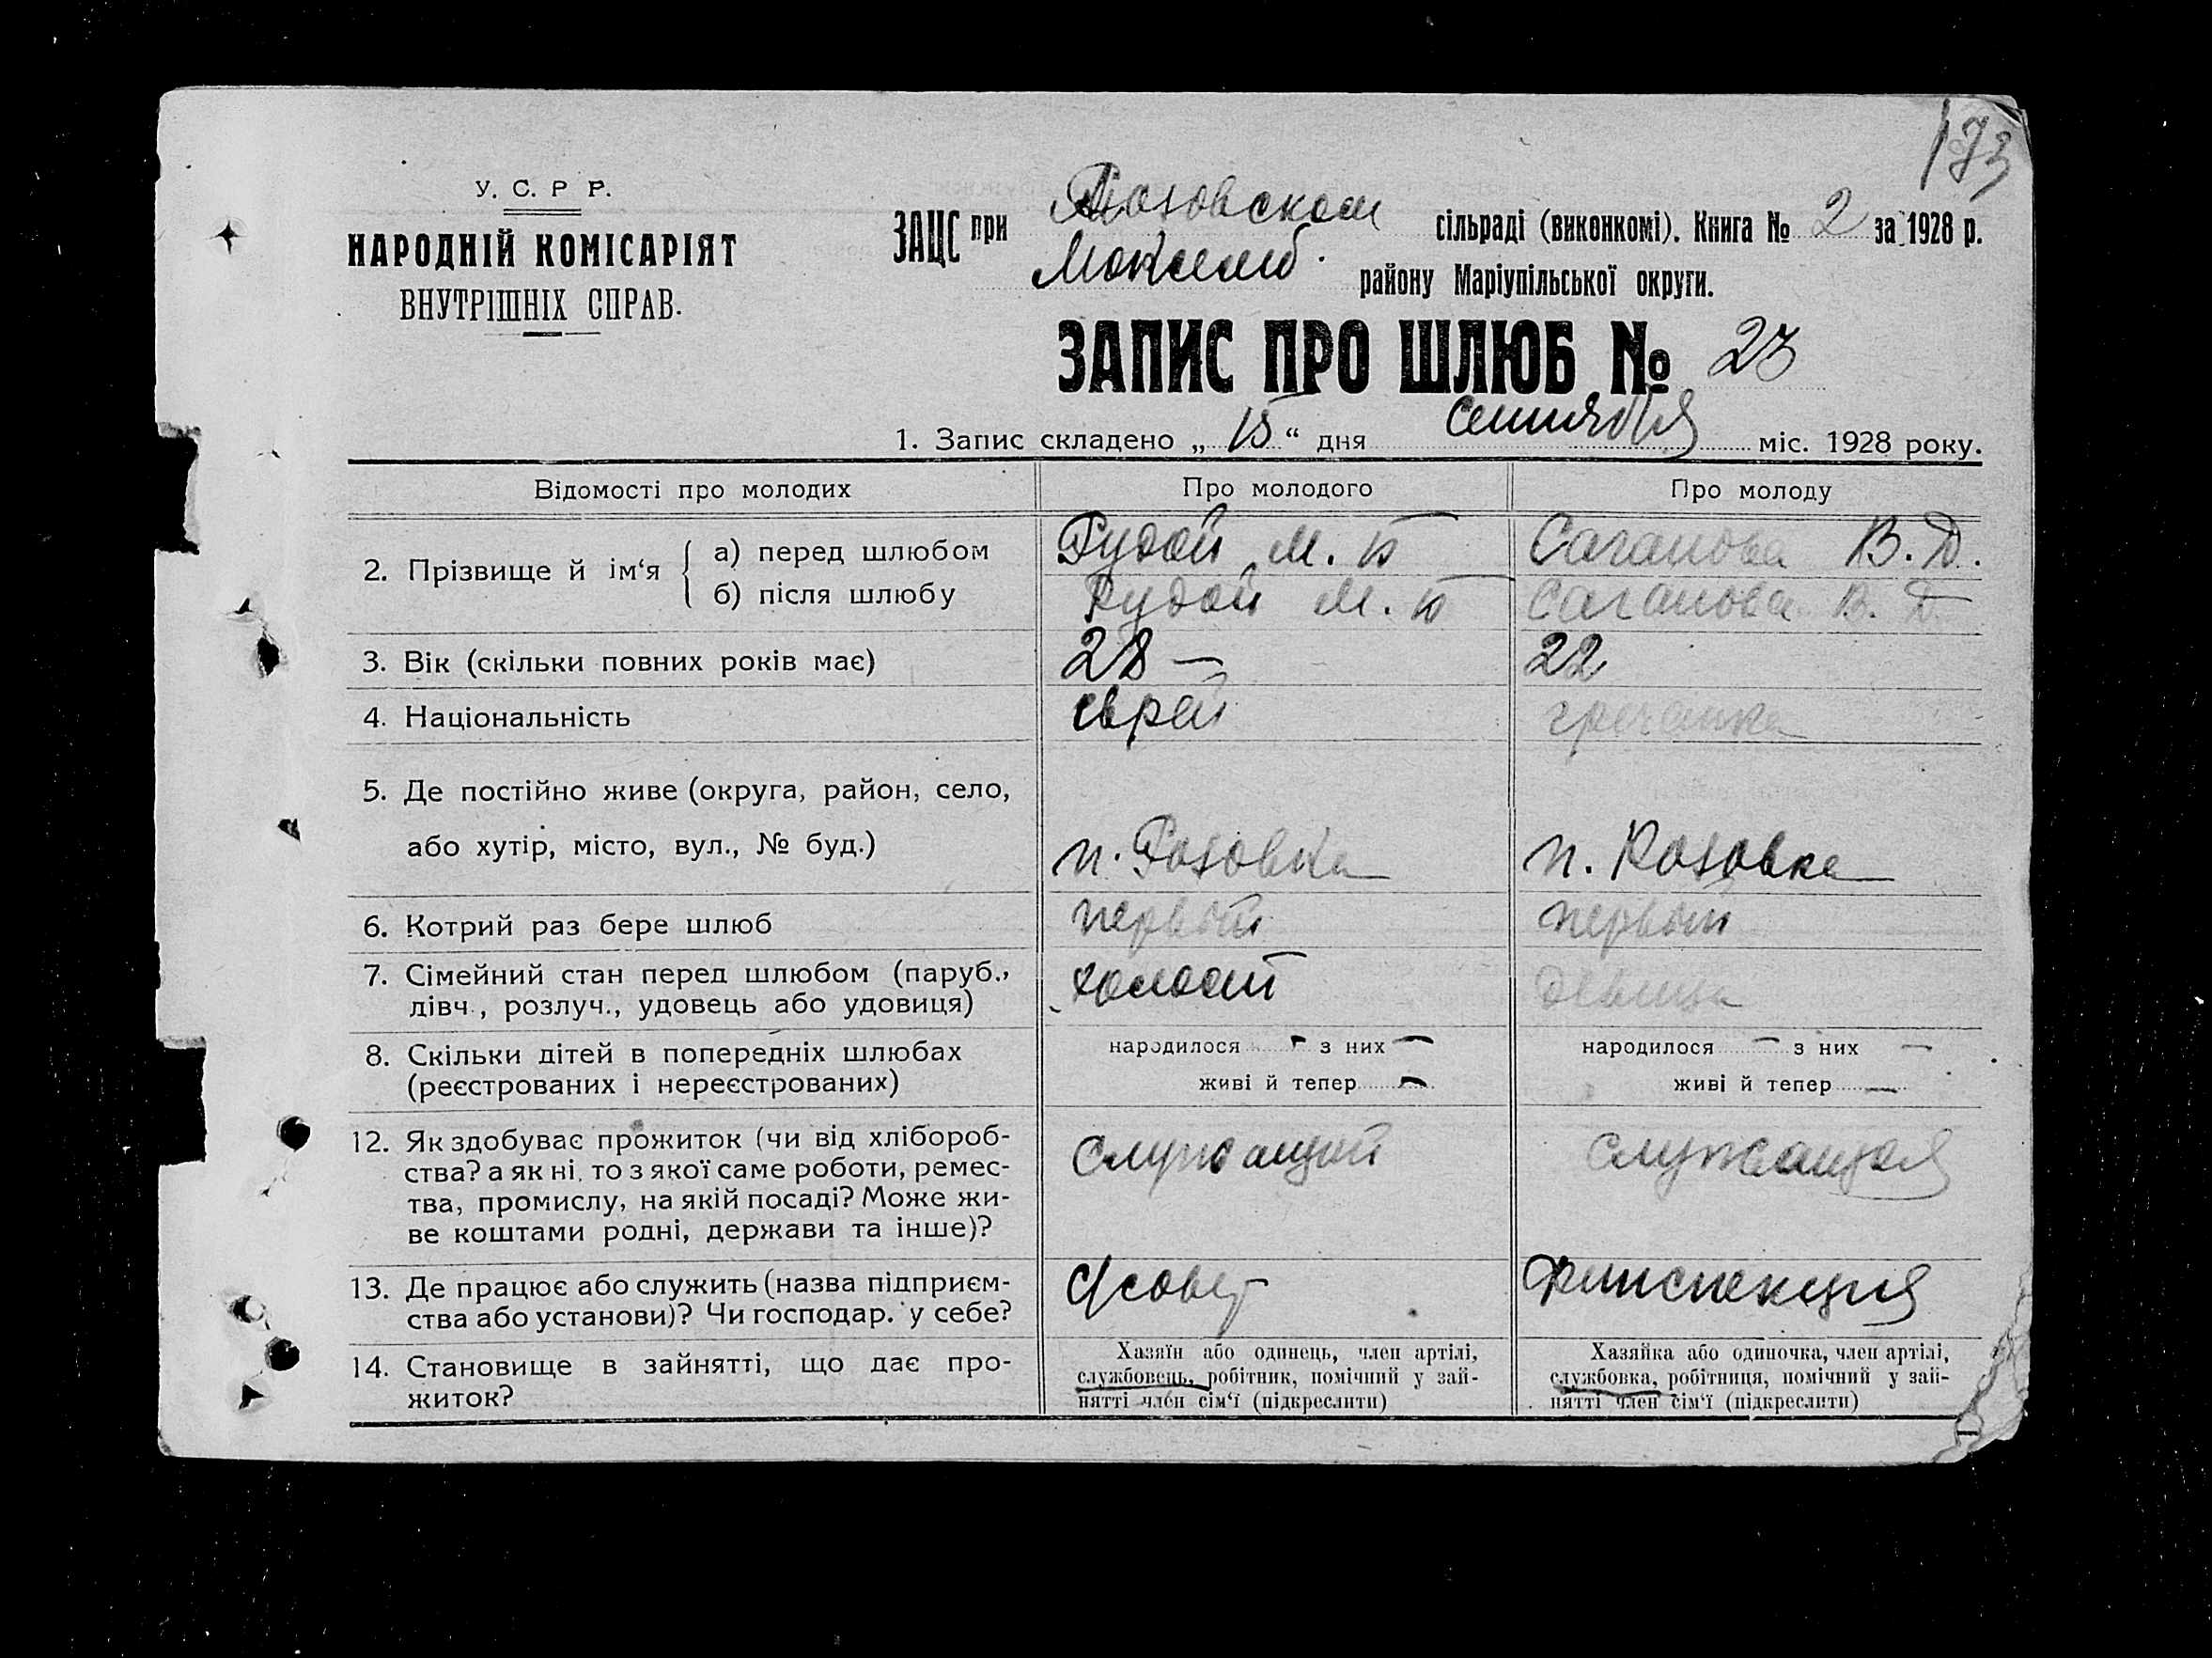 173
У. С. Р Р.
НАРОДНІЙ КОМІСАРІЯТ
ВНУТРІШНІХ СПРАВ.
ЗАЦС при Розовском сільраді (виконкомі). Книга № 2 за 1928 р.
району Маріупільської округи.
ЗАПИС ПРО ШЛЮБ № 23
1. Запис складено „ 15 “ дня сентября міс. 1928 року.
Відомості про молодих Про молодого Про молоду
2. Прізвище й ім‘я { а) перед шлюбом Рудой М. Саганова В. Д.
б) після шлюбу Рудой М. Саганова В. Д.
3. Вік (скільки повних років має) 28 — 22
4. Національність еврей гречанка
5. Де постійно живе (округа, район, село,
або хутір, місто, вул., № буд.) п. Розовка п. Розовка
6. Котрий раз бере шлюб первый первый
7. Сімейний стан перед шлюбом (паруб., холост девица
дівч., розлуч., удовець або удовиця)
8. Скільки дітей в попередніх шлюбах народилося — з них — народилося — з них —
(реєстрованих і нереєстрованих) живі й тепер — живі й тепер —
12. Як здобуває прожиток (чи від хлібороб- служащий служащая
ства? а як ні, то з якої саме роботи, ремес-
тва, промислу, на якій посаді? Може жи-
ве коштами родні, держави та інше)?
13. Де працює або служить (назва підприєм- Финспекция
ства або установи)? Чи господар. у себе?
14. Становище в зайнятті, що дає про-
житок?
Хазяїн або одинець, член артілі,
службовець, робітник, помічний у зай-
нятті член сім‘ї (підкреслити)
Хазяйка або одиночка, член артілі,
службовка, робітниця, помічний у зай-
нятті член сім‘ї (підкреслити)